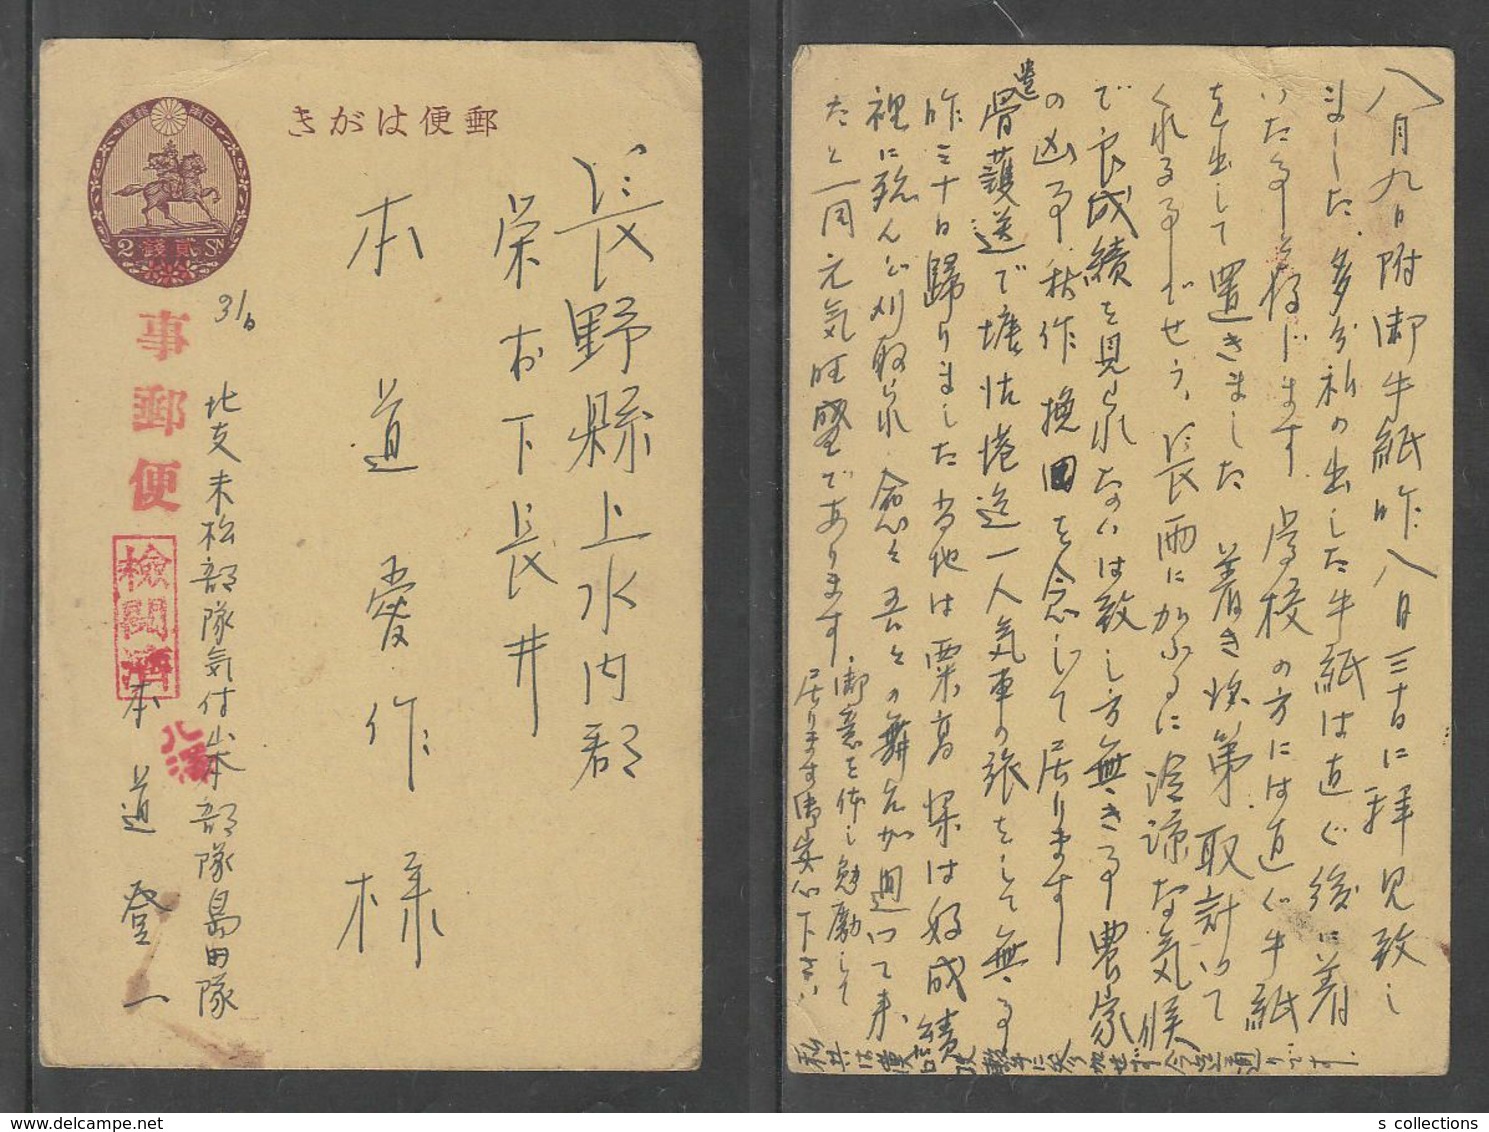 郵便はがき
日本
郵便
2 貳錢 SN
事郵便
檢閲濟
長野縣上水内郡
栄村下長井
本道愛作様
31/8
北支末松部隊気付山本部隊島田隊
本道登一
八月九日附御手紙昨八月三十日に拝見致し
ました、多分私の出した手紙は直ぐ後に着
いた事と存じます 学校の方には直ぐ手紙
を出して置きました 着き次第取計って
くれる事でせう、長雨にかぶるに冷涼な気候
で良成績を見られないは致し方無き事 農家
の凶事 秋作挽回を念じて居ります
遺骨護送で塘沽港迄一人気車の旅をして無事
昨三十日歸りました 当地は粟高粱は好成績
裡に殆んど刈取られ 愈々吾々の舞台が廻って来
たと一同元気旺盛であります
御意を体し勉勵して
居ります 御安心下さい
私共は漢口攻撃に参加せず今迄通りです.
s collections